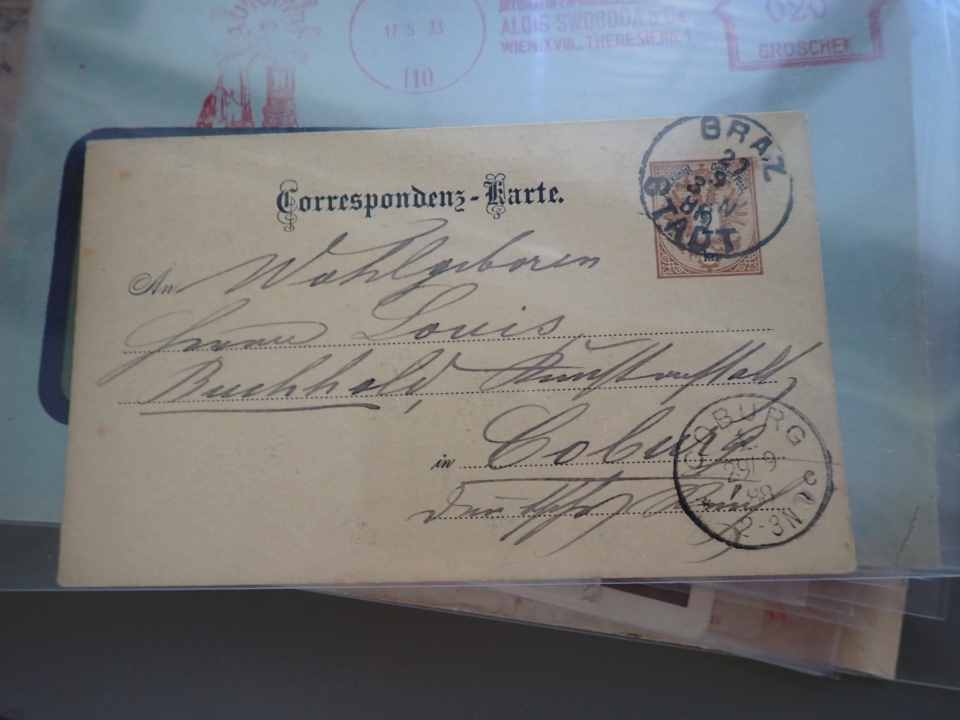 17 5 33
110
ALOIS SWOBODA & Co
WIEN XVIII, THERESIENG.
020
GROSCHEN
Correspondenz-Karte.
GRAZ
27
9
3 N
88
STADT
An Wohlgeboren
Herrn Louis
Buchhold, Kunstanstalt
in Coburg
Deutsches Reich
COBURG
29 9
88
2-3N